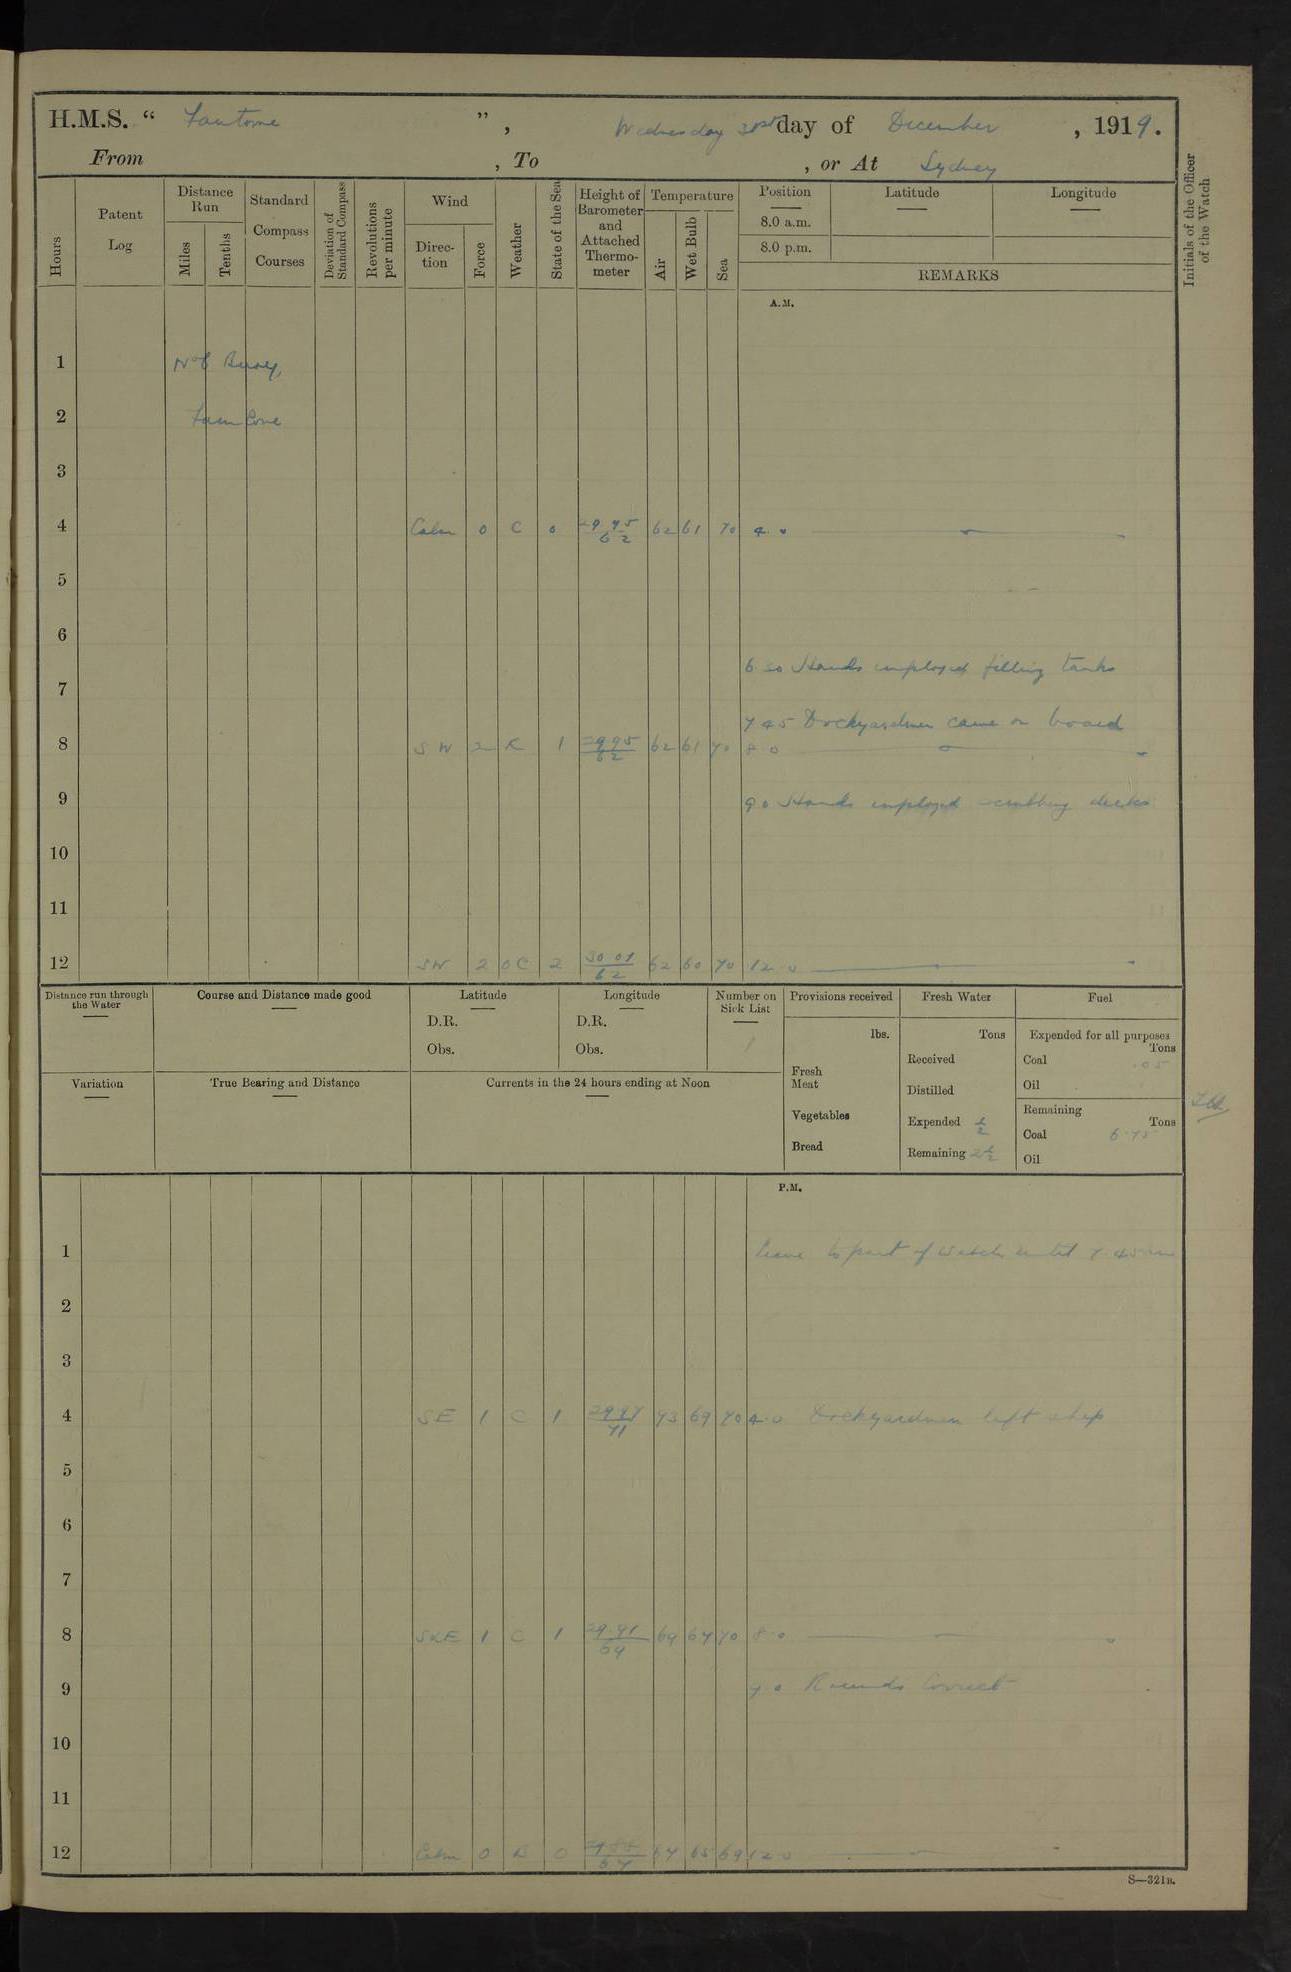 H.M.S. “ Fantome ”, Wednesday 31st day of December, 1919.
From , To , or At Sydney
Hours
Patent Log
Distance Run
Miles
Tenths
Standard Compass Courses
Deviation of Standard Compass
Revolutions per minute
Wind
Direction
Force
Weather
State of the Sea
Height of Barometer and Attached Thermometer
Temperature
Air
Wet Bulb
Sea
Position Latitude Longitude
8.0 a.m.
8.0 p.m.
REMARKS
Initials of the Officer of the Watch
A.M.
1 No 6 Buoy,
2 Farm Cove
3
4 Calm 0 C 0 29.95/62 62 61 70 4.0
5
6
6 30 Hands employed filling tanks
7
7 45 Dockyardmen came on board
8 SW 2 R 1 29.95/62 62 61 70 8.0
9 9 0 Hands employed scrubbing decks
10
11
12 SW 2 OC 2 30 01/62 62 60 70 12 0
Distance run through the Water
Course and Distance made good
Latitude
D.R.
Obs.
Longitude
D.R.
Obs.
Number on Sick List
1
Variation
True Bearing and Distance
Currents in the 24 hours ending at Noon
Provisions received
lbs.
Fresh Meat
Vegetables
Bread
Fresh Water
Tons
Received
Distilled
Expended ½
Remaining 2½
Fuel
Expended for all purposes
Tons
Coal .05
Oil
Remaining
Tons
Coal 6.75
Oil
P.M.
1 Leave to part of watch until 7.45 am
2
3
4 SE 1 C 1 29.97/71 73 69 70 4.0 Dockyardmen left ship
5
6
7
8 SxE 1 C 1 29.91/69 69 67 70 8.0
9 9 0 Rounds Correct
10
11
12 Calm 0 R 0 67 65 69 12 0
S—321B.